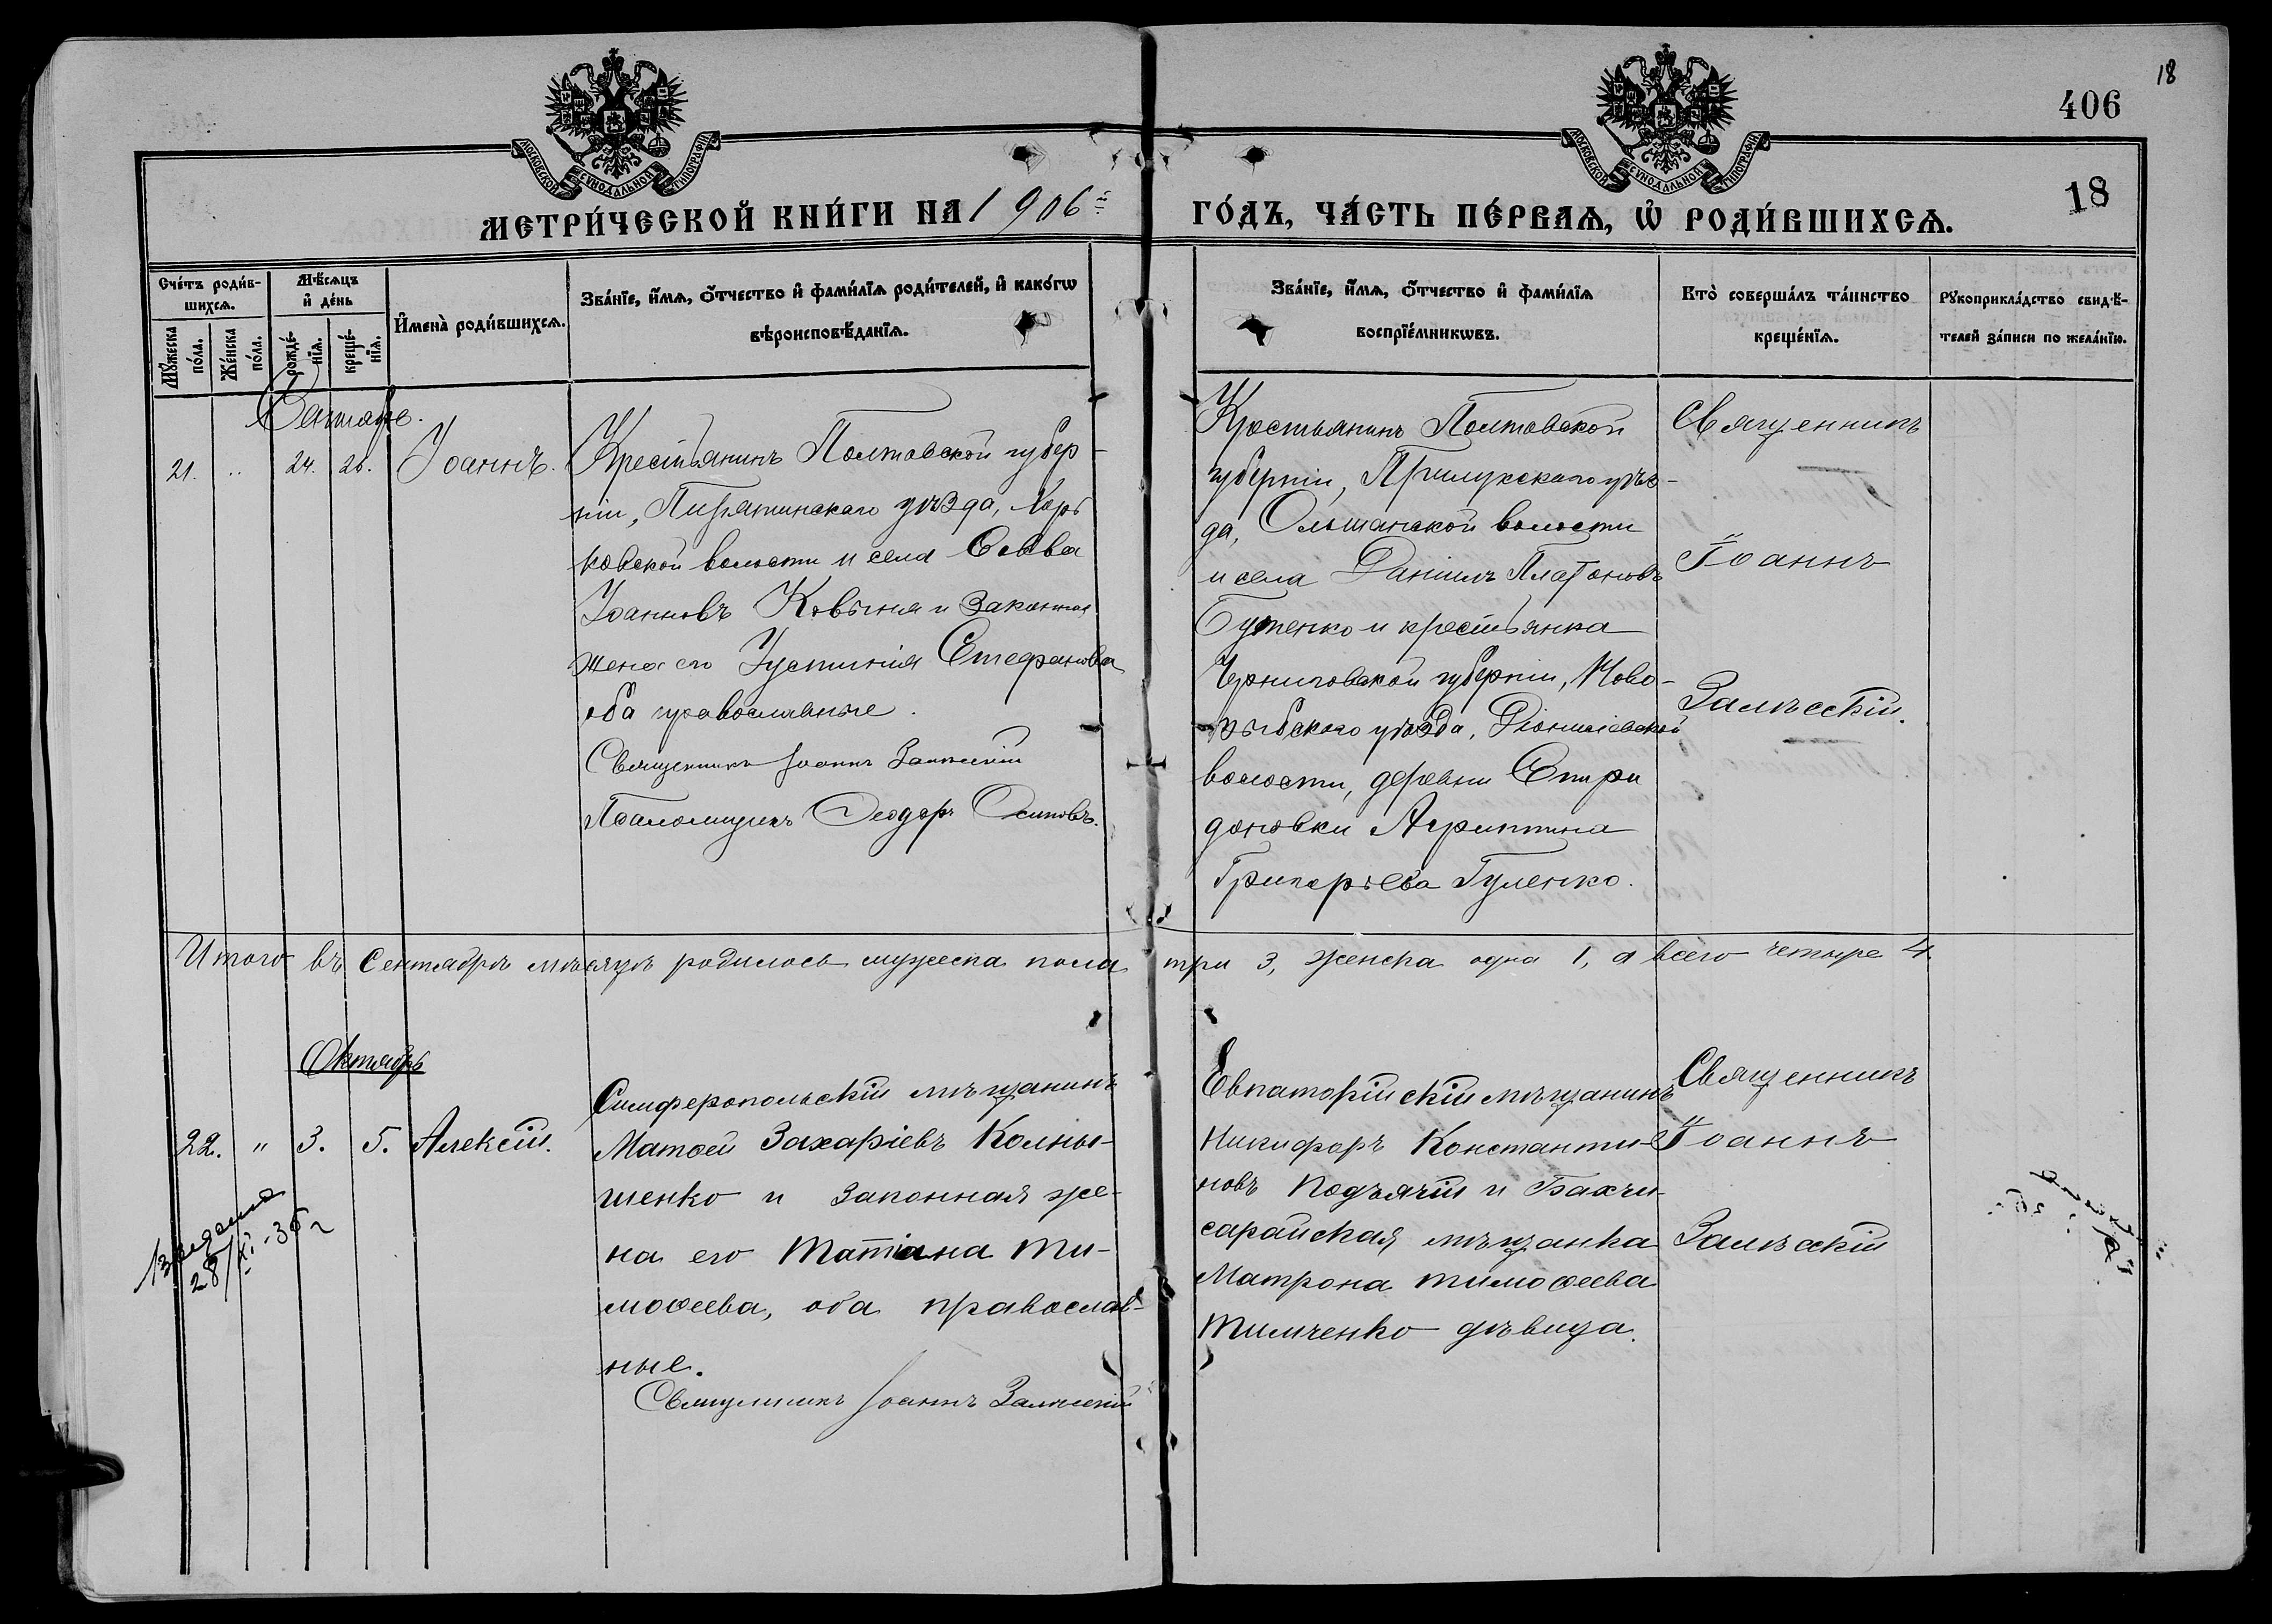 18
406
18
МОСКОВСКОЙ СУНОДАЛЬНОЙ ТИПОГРАФІИ
МОСКОВСКОЙ СУНОДАЛЬНОЙ ТИПОГРАФІИ
МЕТРИ́ЧЕСКОЙ КНИ́ГИ НА 1906й ГО́ДЪ, ЧА́СТЬ ПЕ́РВАѦ, Ѡ҆ РОДИ́ВШИХСѦ.
Сче́тъ роди́в-
шихсѧ.
Мꙋ́жеска
по́ла.
Же́нска
по́ла.
Мѣ́сѧцъ
и҆ де́нь
рожде́-
нїѧ.
креще́-
нїѧ.
И҆мена̀ роди́вшихсѧ.
Зва́нїе, и҆́мѧ, ѻ҆́тчество и҆ фами́лїѧ роди́телей, и҆ како́гѡ
вѣроисповѣ́данїѧ.
Зва́нїе, и҆́мѧ, ѻ҆́тчество и҆ фами́лїѧ
воспрїе́мникѡвъ.
Кто̀ соверша́лъ та́инство
креще́нїѧ.
Рꙋкоприкла́дство свидѣ́-
телей за́писи по жела́нїю.
Сентябрь.
21. „ 24. 26. Іоаннъ.
Крестьянинъ Полтавской губер-
ніи, Пирятинскаго уѣзда, Харь
ковской волости и села Савва
Іоанновъ Ковыня и законная
жена его Іустинія Стефанова
оба православные.
Священникъ Іоаннъ Залѣсскій
Псаломщикъ Ѳеодоръ Осиповъ.
Крестьянинъ Полтавской
губерніи, Прилукскаго уѣз-
да, Ольшанской волости
и села Даніилъ Платоновъ
Бутенко и крестьянка
Черниговской губерніи, Ново-
зыбскаго уѣзда, Діонисіевской
волости, деревни Спири
доновки Агриппина
Григорьева Гуленко.
Священникъ
Іоаннъ
Залѣсскій.
Итого въ Сентябрѣ мѣсяцѣ родилось мужеска пола три 3, женска одна 1, а всего четыре 4.
Октябрь
22. „ 3. 5. Алексій.
28/XI-35г
Симферопольскій мѣщанинъ
Матѳей Захаріевъ Колны-
шенко и законная же-
на его Татіана Ти-
моѳеева, оба православ-
ные.
Священникъ Іоаннъ Залѣсскій
Евпаторійскій мѣщанинъ
Никифоръ Константи-
новъ Подъячій и Бахчи-
сарайская мѣщанка
Матрона Тимоѳеева
Тимченко дѣвица.
Священникъ
Іоаннъ
Залѣскій